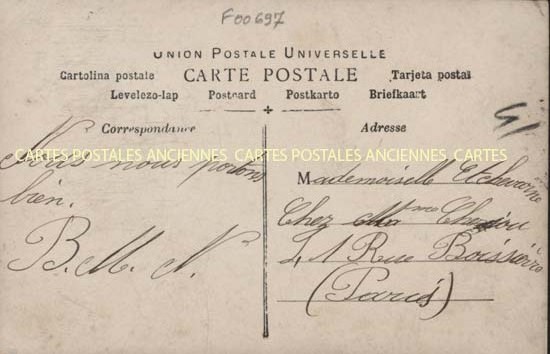 F00697
UNION POSTALE UNIVERSELLE
Cartolina postale CARTE POSTALE Tarjeta postal
Levelezo-lap Postcard Postkarto Briefkaart
Correspondance
Nous nous portons
bien.
B. M. N.
Adresse
Mademoiselle Etcheverre
Chez Mme
41 Rue Boissière
(Paris)
CARTES POSTALES ANCIENNES CARTES POSTALES ANCIENNES CARTES POSTALES ANCIENNES